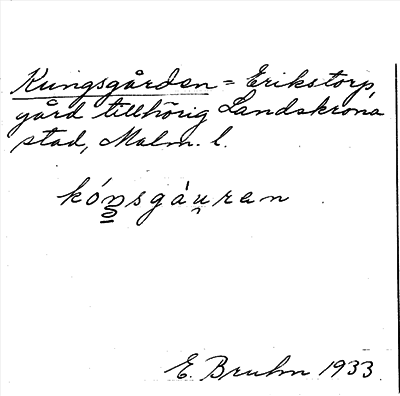 Kungsgården = Erikstorp,
gård tillhörig Landskrona
stad, Malm. l.
kón̲sgàu̯ran
E. Bruhn 1933